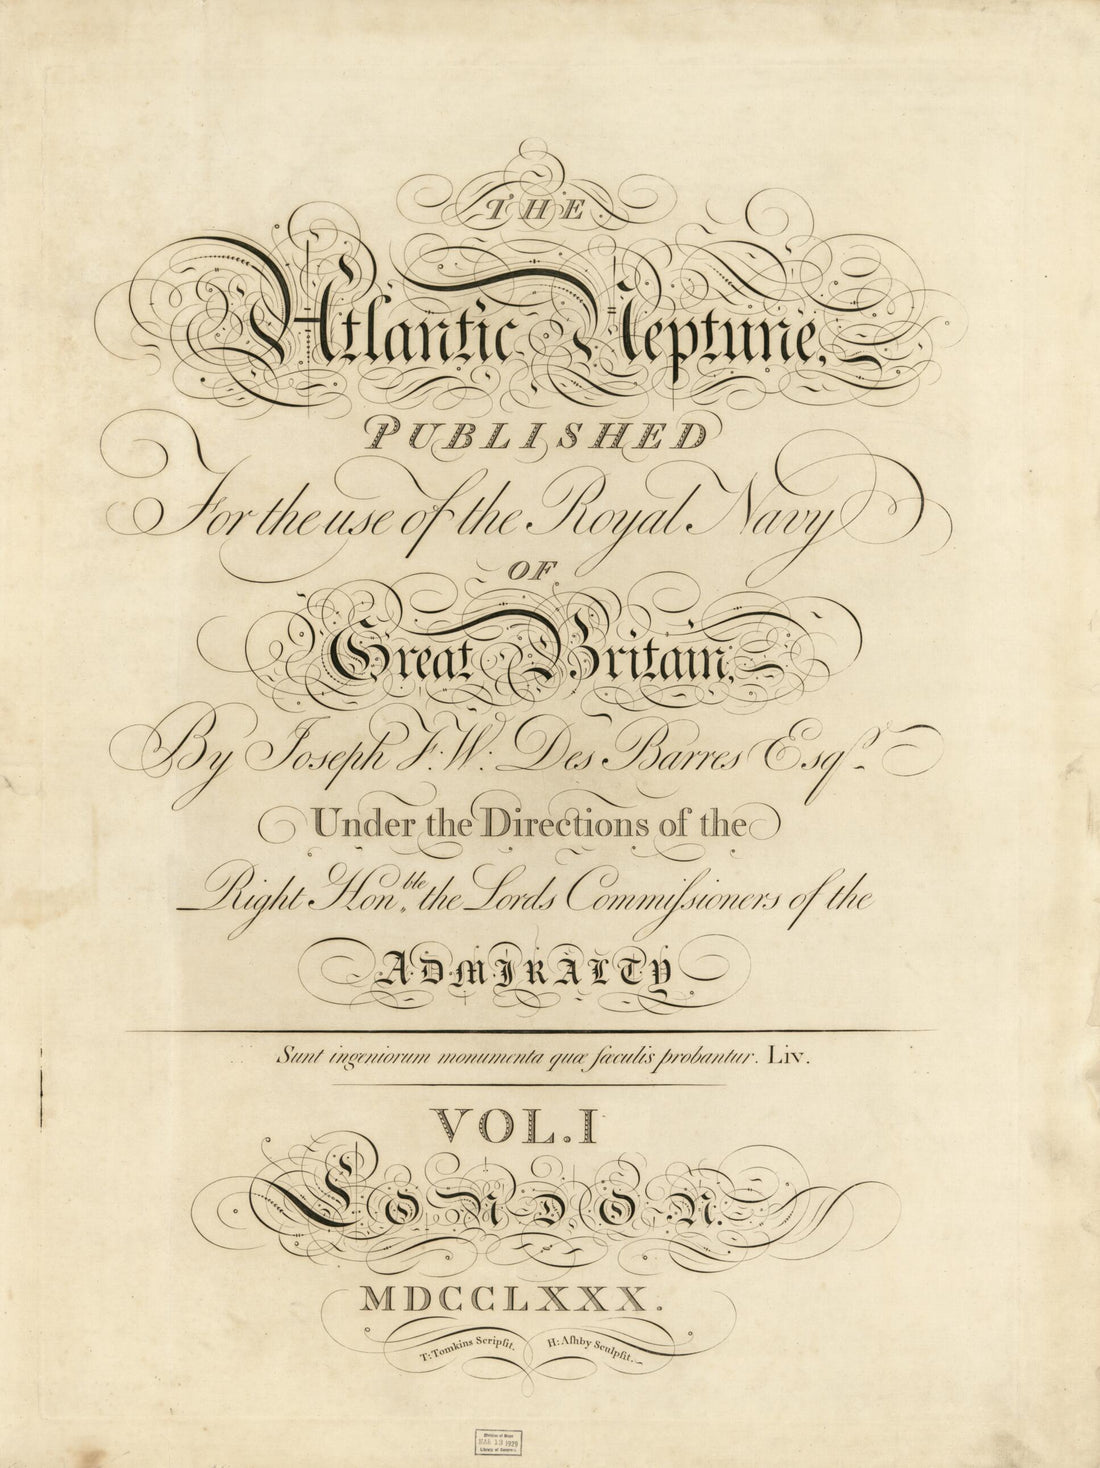 THE
Atlantic Neptune,
PUBLISHED
For the use of the Royal Navy
OF
Great Britain,
By Joseph F. W. Des Barres Esqr.
Under the Directions of the
Right Honble. the Lords Commiſsioners of the
ADMIRALTY
Sunt ingeniorum monumenta quæ ſæculis probantur. Liv.
VOL. I
LONDON.
MDCCLXXX.
T: Tomkins Scripſit. H: Aſhby Sculpſit.
Division of Maps
MAR 13 1929
Library of Congress